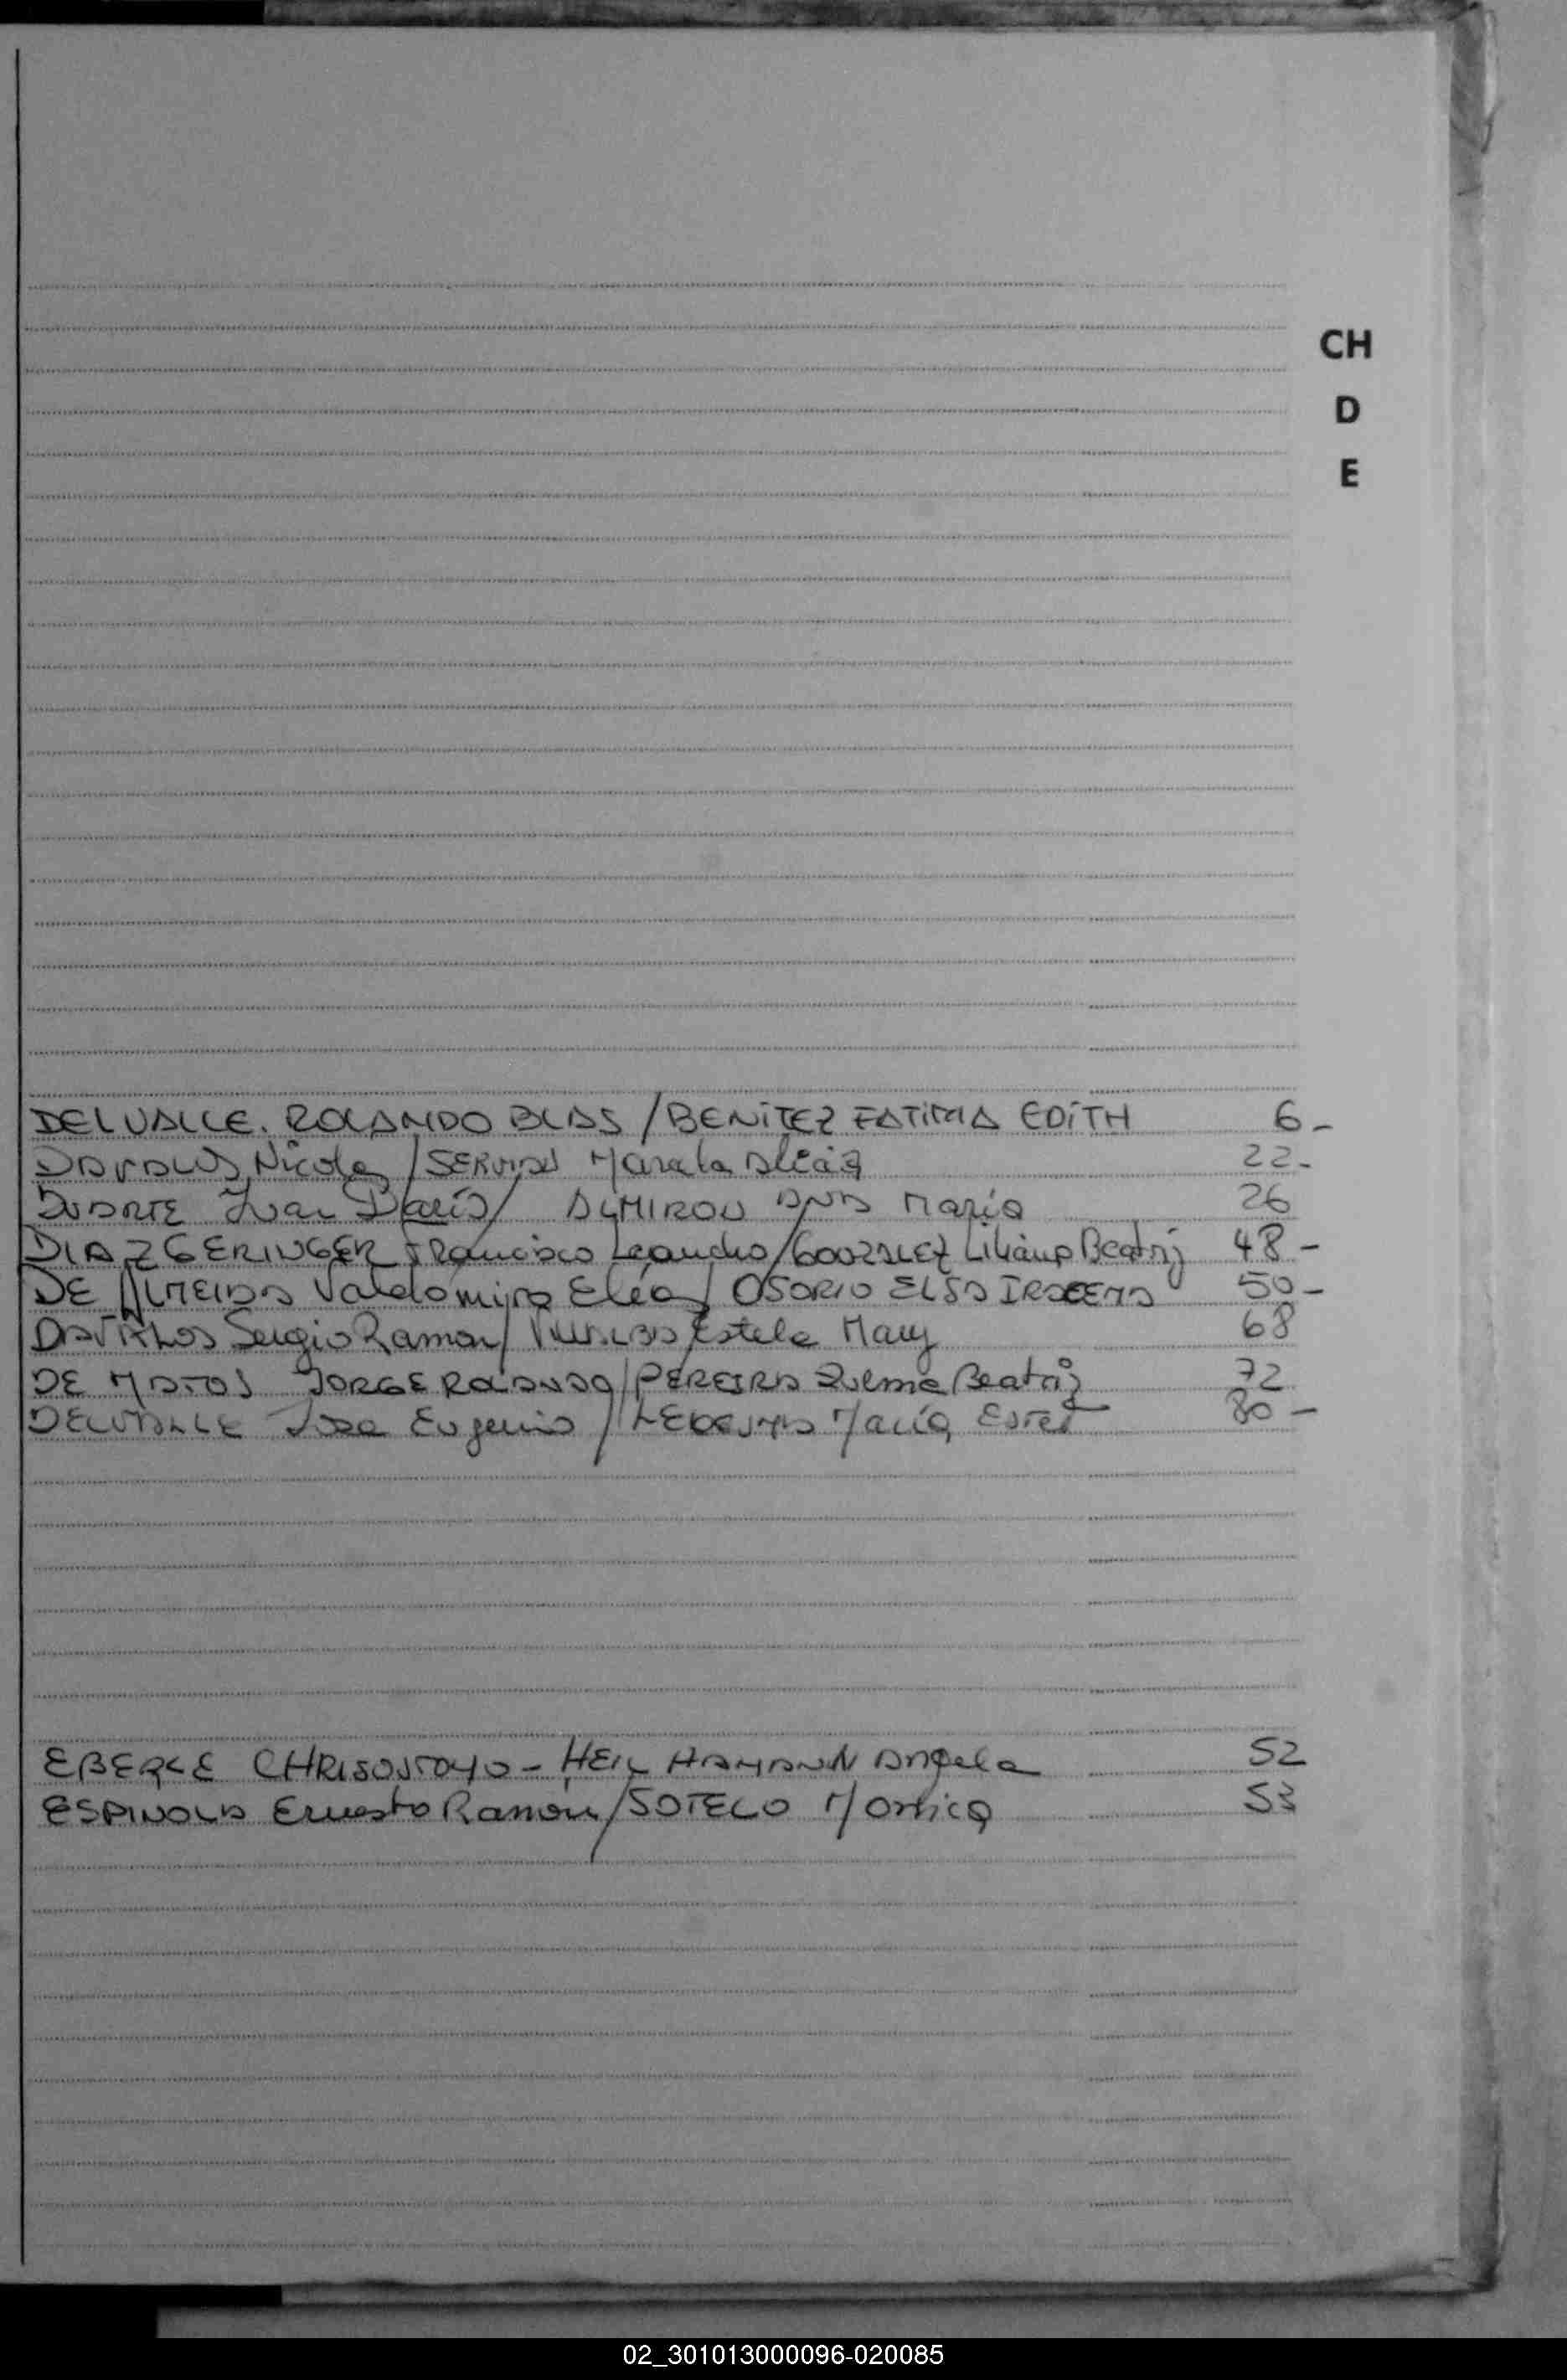 CH
D
E
DELVALLE. ROLANDO BLAS / BENITEZ FATIMA EDITH 6-
DAVALOS, Nicolas / SERVIAN Marcela Alicia 22-
DUARTE Ivan Dario / ALMIRON ANA Maria 26
DIAZ GERINGER FRancisco Leandro / GONZALEZ Liliana Beatriz 48-
DE ALMEIDA Valdomiro Elias / OSORIO ELSA IRACEMA 50-
DAVALOS Sergio Ramon / VILLALBA Estela Mary 68
DE MATOS JORGE ROLANDO / PEREIRA Zulma Beatriz 72
DELVALLE Jose Eugenio / LEDESMA Maria Ester 80-
EBERLE CHRISOSTOMO - HEIL HAMANN Angela 52
ESPINOLA Ernesto Ramon / SOTELO Monica 53
02_301013000096-020085